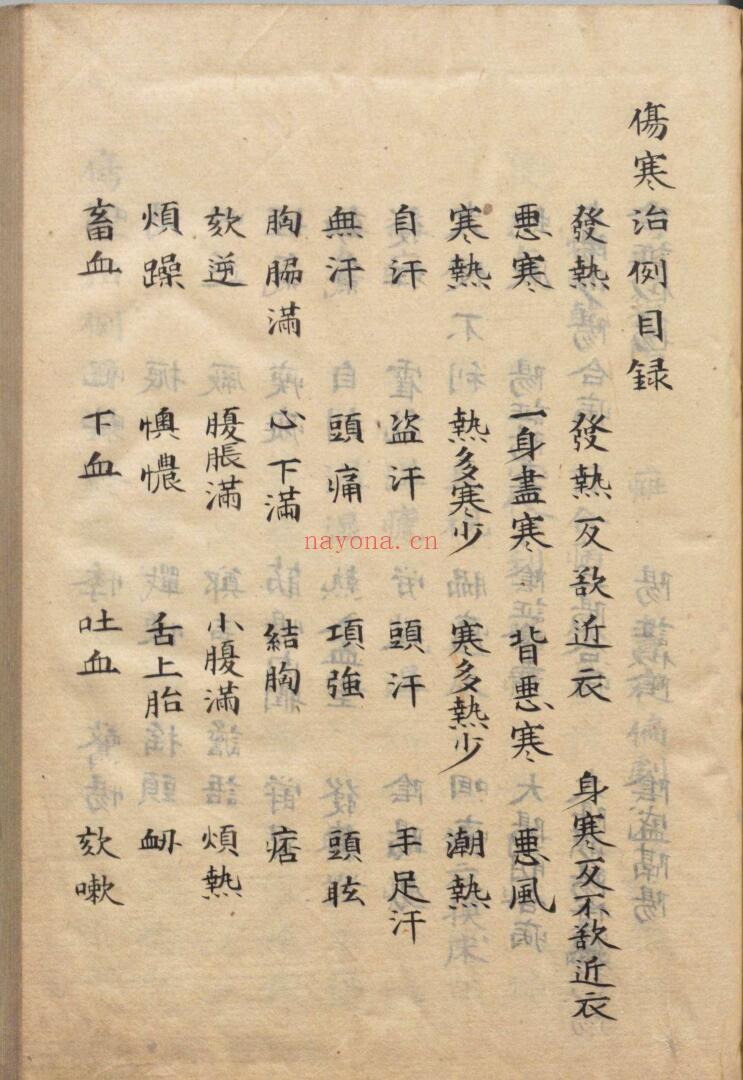 傷寒治例目録
發熱 發熱反欲近衣 身寒反不欲近衣
悪寒 一身盡寒 背悪寒 悪風
寒熱 熱多寒少 寒多熱少 潮熱
自汗 盗汗 頭汗 手足汗
無汗 頭痛 項強 頭眩
胸脇滿 心下滿 結胸 痞
欬逆 腹脹滿 小腹滿 煩熱
煩躁 懊憹 舌上胎 衂
畜血 下血 吐血 欬嗽
nayona.cn